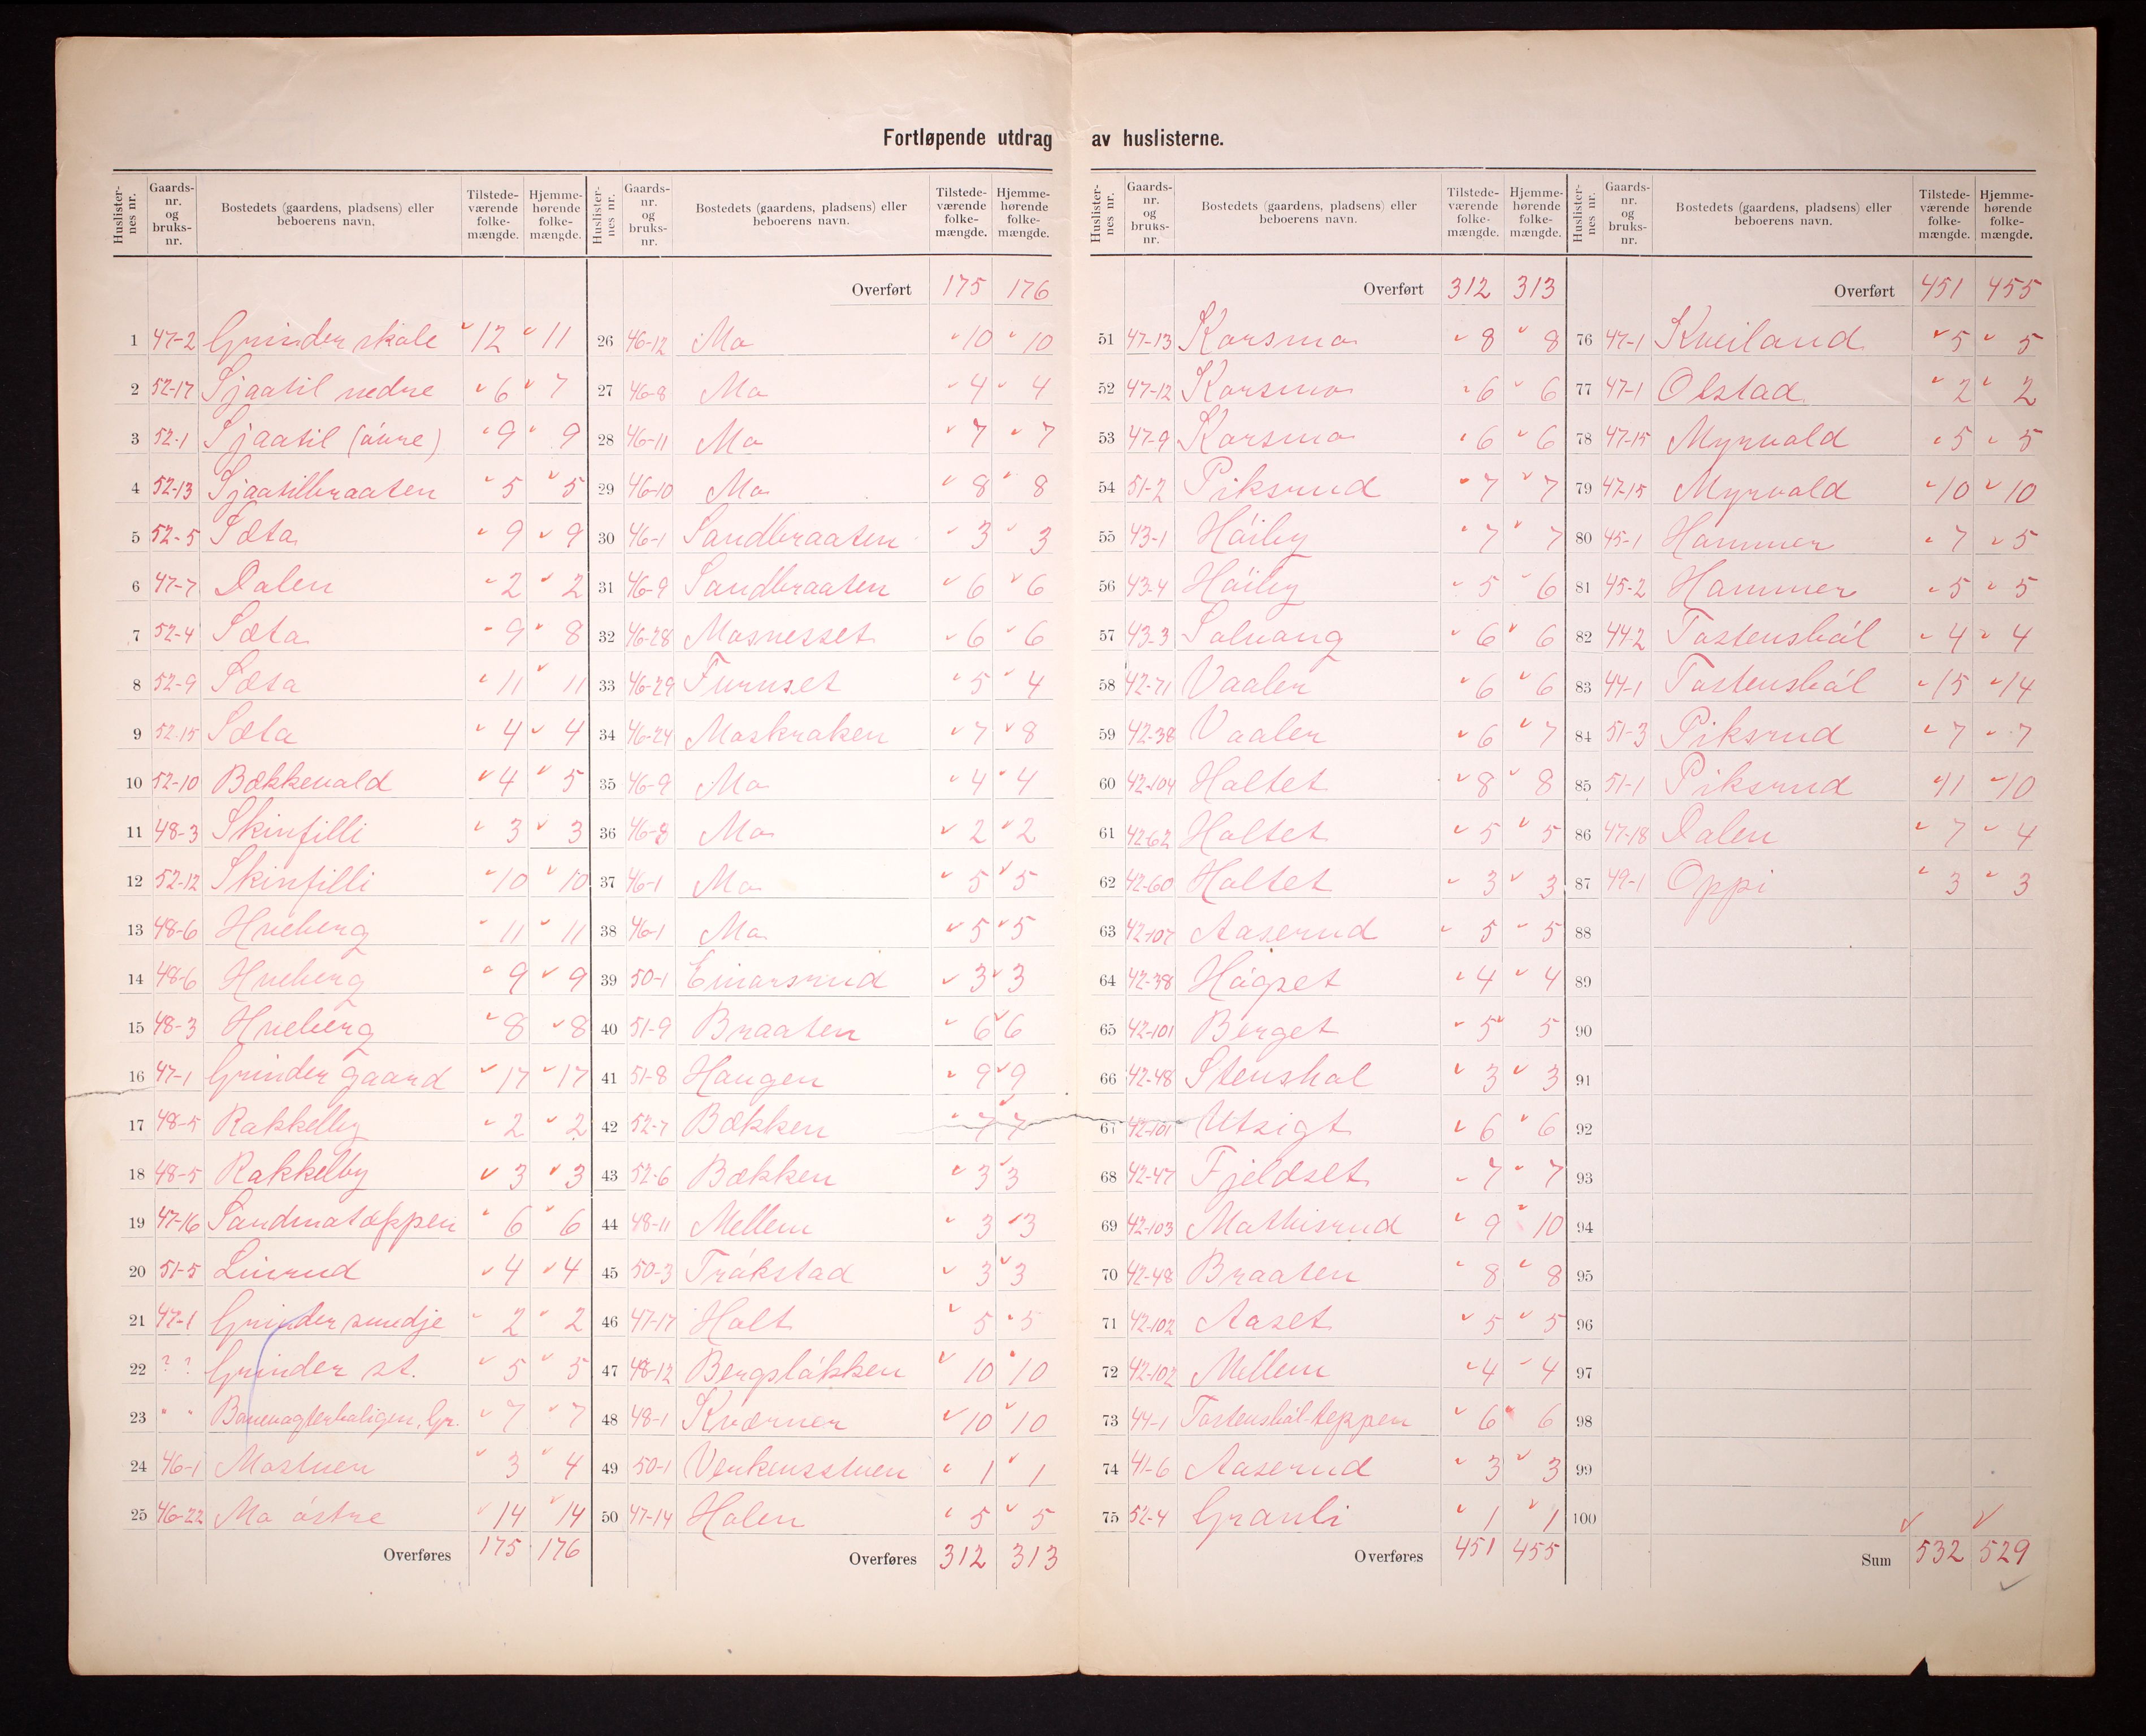 Fortløpende utdrag av huslisterne.
Huslister-nes nr. Gaards-nr. og bruks-nr. Bostedets (gaardens, pladsens) eller beboerens navn. Tilstede-værende folke-mængde. Hjemme-hørende folke-mængde.
1 47-2 Grinder skole 12 11
2 52-17 Sjaatil nedre 6 7
3 52-1 Sjaatil (övre) 9 9
4 52-13 Sjaatilbraaten 5 5
5 52-5 Sæta 9 9
6 47-7 Dalen 2 2
7 52-4 Sæta 9 8
8 52-9 Sæta 11 11
9 52-15 Sæta 4 4
10 52-10 Bækkevold 4 5
11 48-3 Skinfilli 3 3
12 52-12 Skinfilli 10 10
13 48-6 Hveberg 11 11
14 48-6 Hveberg 9 9
15 48-3 Hveberg 8 8
16 47-1 Grinder gaard 17 17
17 48-5 Rakkelby 2 2
18 48-5 Rakkelby 3 3
19 47-16 Sandmotoppen 6 6
20 51-5 Linrud 4 4
21 47-1 Grinder smedje 2 2
22 ? ? Grinder st. 5 5
23 " " Banevogterboligen, Gr. 7 7
24 46-1 Mostuen 3 4
25 46-22 Mo östre 14 14
Overføres 175 176
Huslister-nes nr. Gaards-nr. og bruks-nr. Bostedets (gaardens, pladsens) eller beboerens navn. Tilstede-værende folke-mængde. Hjemme-hørende folke-mængde.
Overført 175 176
26 46-12 Mo 10 10
27 46-8 Mo 4 4
28 46-11 Mo 7 7
29 46-10 Mo 8 8
30 46-1 Sandbraaten 3 3
31 46-9 Sandbraaten 6 6
32 46-28 Mosnesset 6 6
33 46-29 Furuset 5 4
34 46-24 Moskroken 7 8
35 46-9 Mo 4 4
36 46-8 Mo 2 2
37 46-1 Mo 5 5
38 46-1 Mo 5 5
39 50-1 Einarsrud 3 3
40 51-9 Braaten 6 6
41 51-8 Haugen 9 9
42 52-7 Bækken 7 7
43 52-6 Bækken 3 3
44 48-11 Mellem 3 3
45 50-3 Trökstad 3 3
46 47-17 Holt 5 5
47 48-12 Bergslökken 10 10
48 48-1 Kværner 10 10
49 50-1 Venkensstuen 1 1
50 47-14 Holen 5 5
Overføres 312 313
Huslister-nes nr. Gaards-nr. og bruks-nr. Bostedets (gaardens, pladsens) eller beboerens navn. Tilstede-værende folke-mængde. Hjemme-hørende folke-mængde.
Overført 312 313
51 47-13 Korsmo 8 8
52 47-12 Korsmo 6 6
53 47-9 Korsmo 6 6
54 51-2 Piksrud 7 7
55 43-1 Höiby 7 7
56 43-4 Höiby 5 6
57 43-3 Solvang 6 6
58 42-71 Vaaler 6 6
59 42-38 Vaaler 6 7
60 42-104 Holtet 8 8
61 42-62 Holtet 5 5
62 42-60 Holtet 3 3
63 42-107 Aaserud 5 5
64 42-38 Högset 4 4
65 42-101 Berget 5 5
66 42-48 Stenshol 3 3
67 42-101 Utsigt 6 6
68 42-47 Fjeldset 7 7
69 42-103 Mathisrud 9 10
70 42-48 Braaten 8 8
71 42-102 Aaset 5 5
72 42-102 Mellem 4 4
73 44-1 Tostensböl-teppen 6 6
74 41-6 Aaserud 3 3
75 52-4 Granli 1 1
Overføres 451 455
Huslister-nes nr. Gaards-nr. og bruks-nr. Bostedets (gaardens, pladsens) eller beboerens navn. Tilstede-værende folke-mængde. Hjemme-hørende folke-mængde.
Overført 451 455
76 47-1 Kveiland 5 5
77 47-1 Olstad 2 2
78 47-15 Myrvold 5 5
79 47-15 Myrvold 10 10
80 45-1 Hammer 7 5
81 45-2 Hammer 5 5
82 44-2 Tostensböl 4 4
83 44-1 Tostensböl 15 14
84 51-3 Piksrud 7 7
85 51-1 Piksrud 11 10
86 47-18 Dalen 7 4
87 49-1 Oppi 3 3
88
89
90
91
92
93
94
95
96
97
98
99
100
Sum 532 529